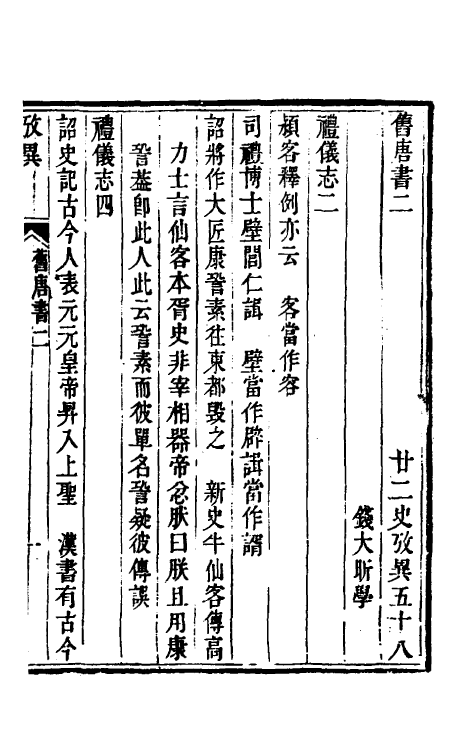 舊唐書二　廿二史攷異五十八
錢大昕學
禮儀志二
頴客釋例亦云　客當作容
司禮博士壁閭仁諝　壁當作辟諝當作諝
詔將作大匠康䛑素往東都毀之　新史牛仙客傳高
力士言仙客本胥史非宰相器帝忿肰曰朕且用康
䛑葢卽此人此云䛑素而彼單名䛑疑彼傳誤
禮儀志四
詔史記古今人表元元皇帝昇入上聖　漢書有古今
攷異　舊唐書二　一